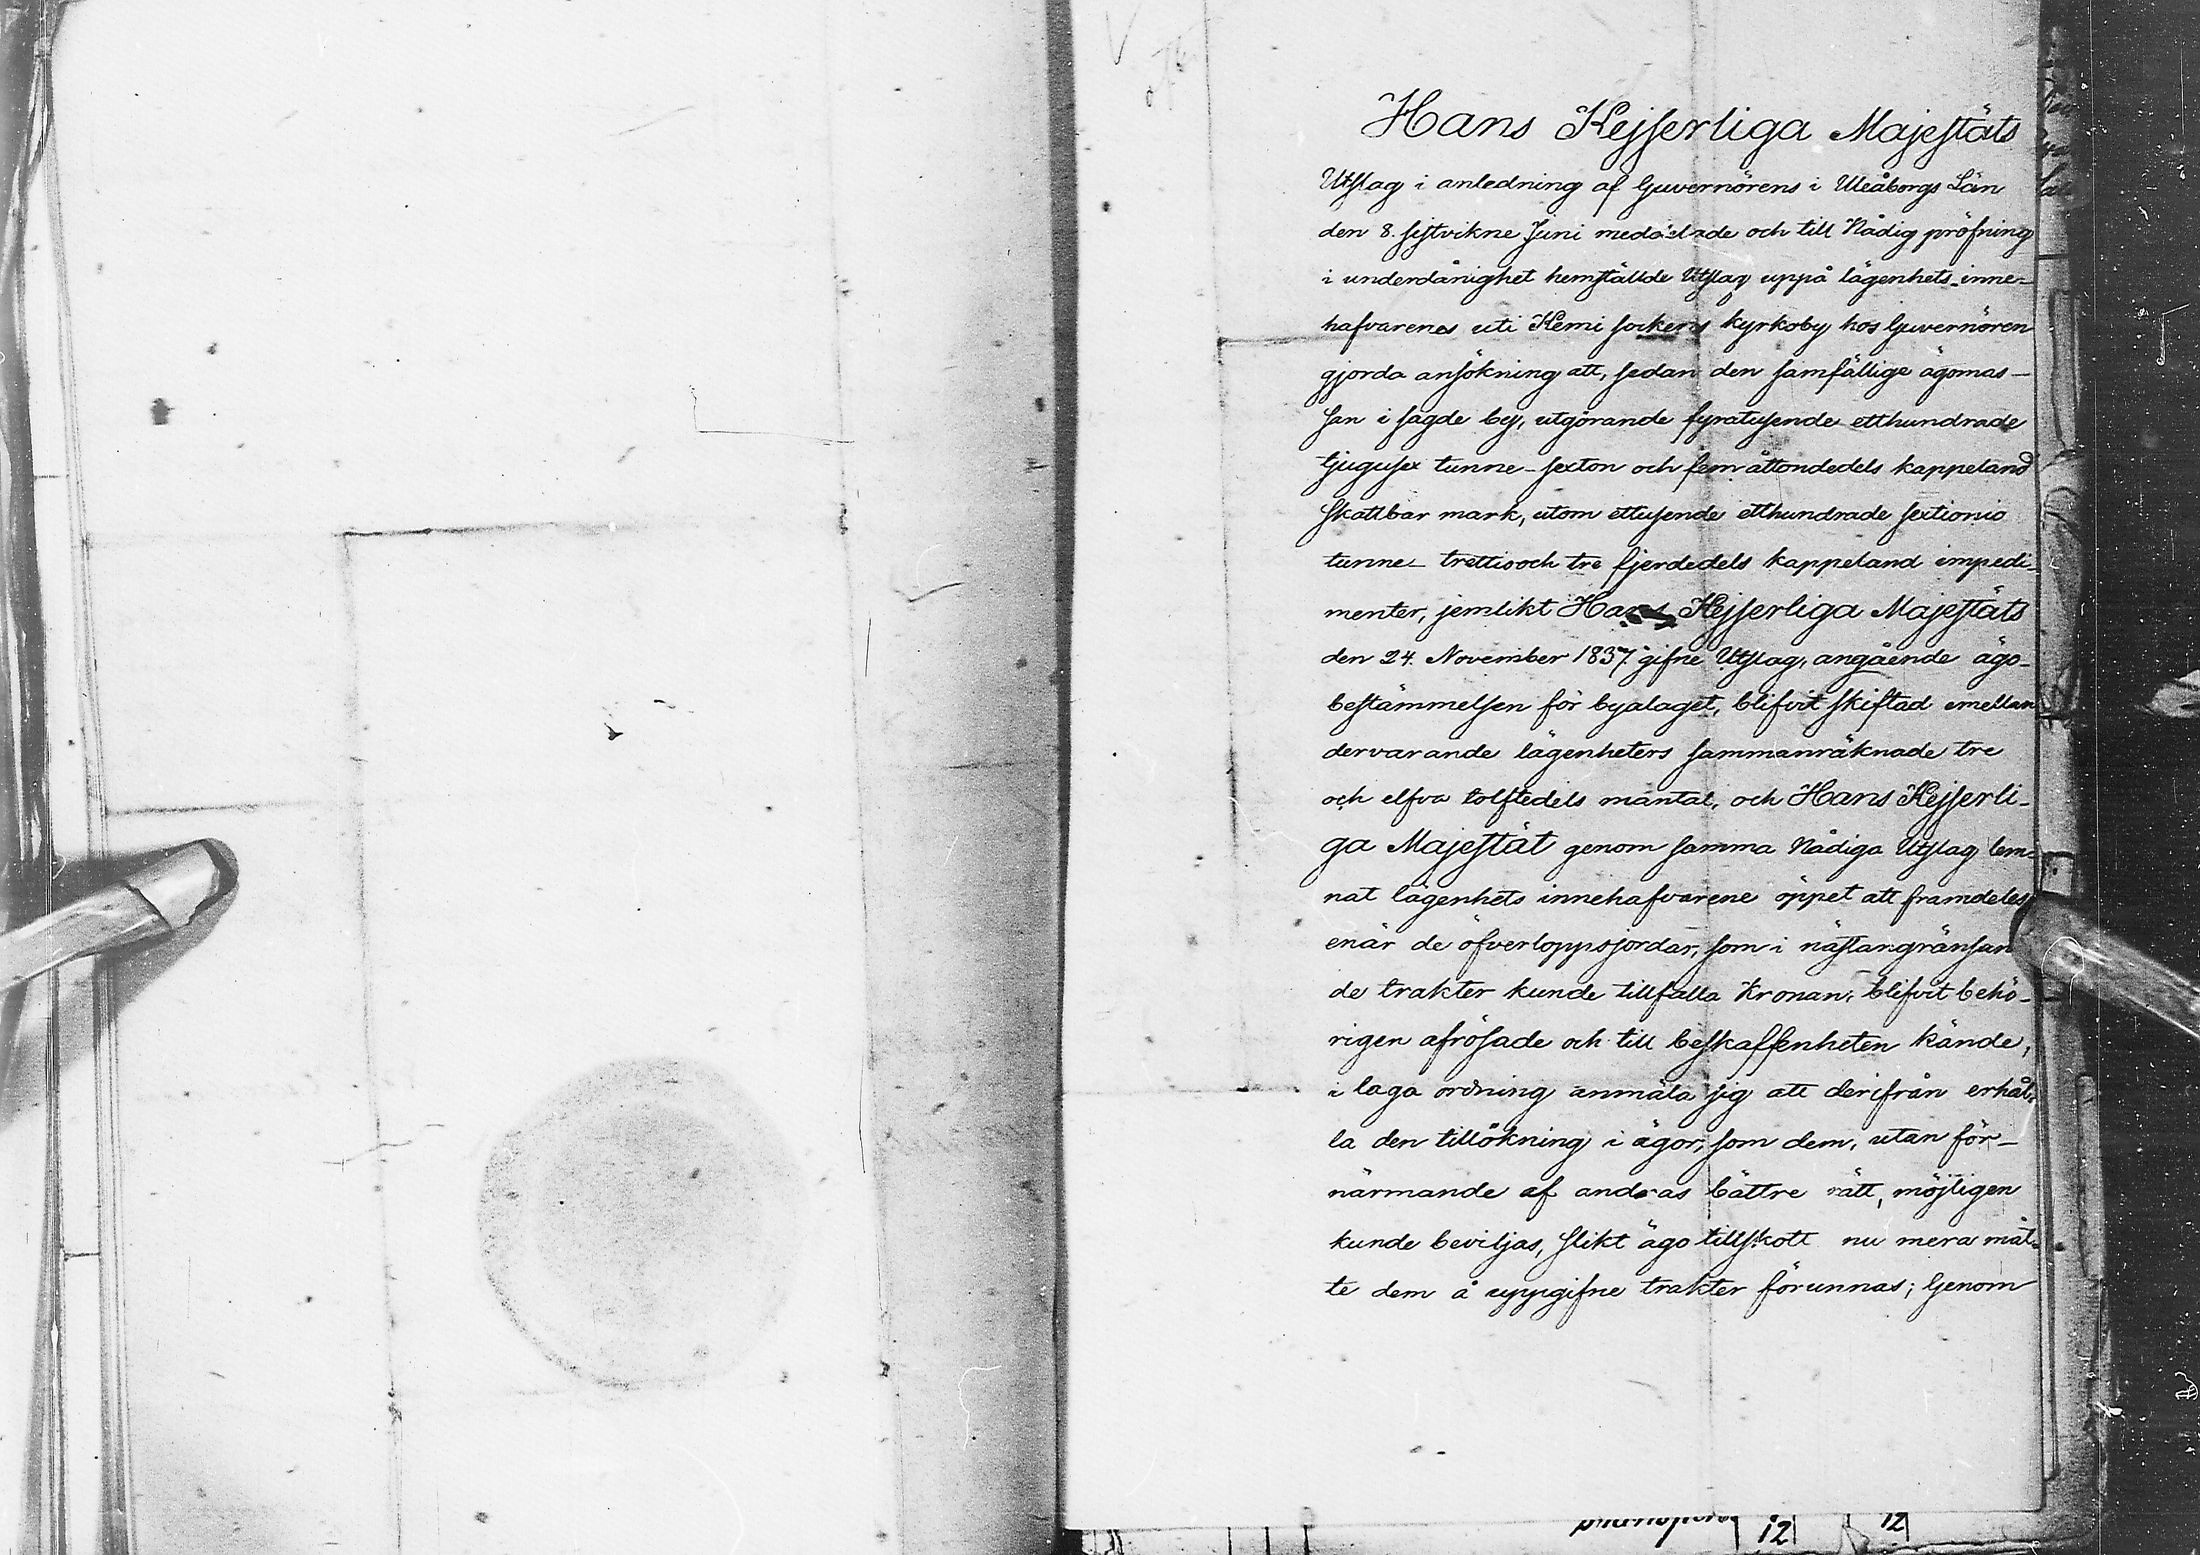 Hans Kejserliga Majestäts
Utslag i anledning af Guvernörens i Uleåborgs Län
den 8. sistvikne Juni meddelade och till Nådig pröfning
i underdånighet hemställde Utslag uppå lägenhets-inne-
hafvarenes uti Kemi sockens kyrkoby hos Guvernören
gjorda ansökning att, sedan den samfällige ägomas-
san i sagde by, utgörande fyratusende etthundrade
tjugusex tunne- sexton och fem åttondedels kappeland
skattbar mark, utom ettusende etthundrade sextionio
tunne- trettio och tre fjerdedels kappeland impedi-
menter, jemlikt Hans Kejserliga Majestäts
den 24. November 1837. gifne Utslag, angående ägo-
bestämmelsen för byalaget, blifvit skiftad emellan
dervarande lägenheters sammanräknade tre
och elfva tolftedels mantal, och Hans Kejserli-
ga Majestät genom samma Nådiga Utslag lem-
nat lägenhets innehafvarene öppet att framdeles,
enär de öfverloppsjordar, som i nästangränsan
de trakter kunde tillfalla Kronan, blifvit behö-
rigen afrösade och till beskaffenheten kände,
i laga ordning anmäla sig att derifrån erhål-
la den tillökning i ägor, som dem, utan för-
närmande af andras bättre rätt, möjligen
kunde beviljas, slikt ägo tillskott nu mera måt-
te dem å uppgifne trakter förunnas; Genom
12
12